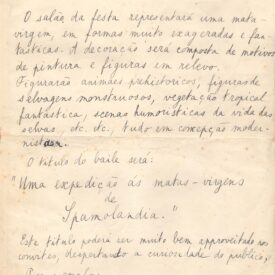 O salão da festa representará uma mata-
virgem, em formas muito exageradas e fan-
tasticas. A decoração será composta de motivos
de pintura e figuras em relevo.
Figurarão animaes prehistoricos, figuras de
selvagens monstruosos, vegetação tropical
fantástica, scenas humoristicas da vida das
selvas, etc, etc, tudo em concepção moder-
nista.
O titulo do baile será:
"Uma expedição ás matas-virgens
de
Spamolandia."
Este titulo poderá ser muito bem aproveitado nos
convites, despertando a curiosidade do publico,